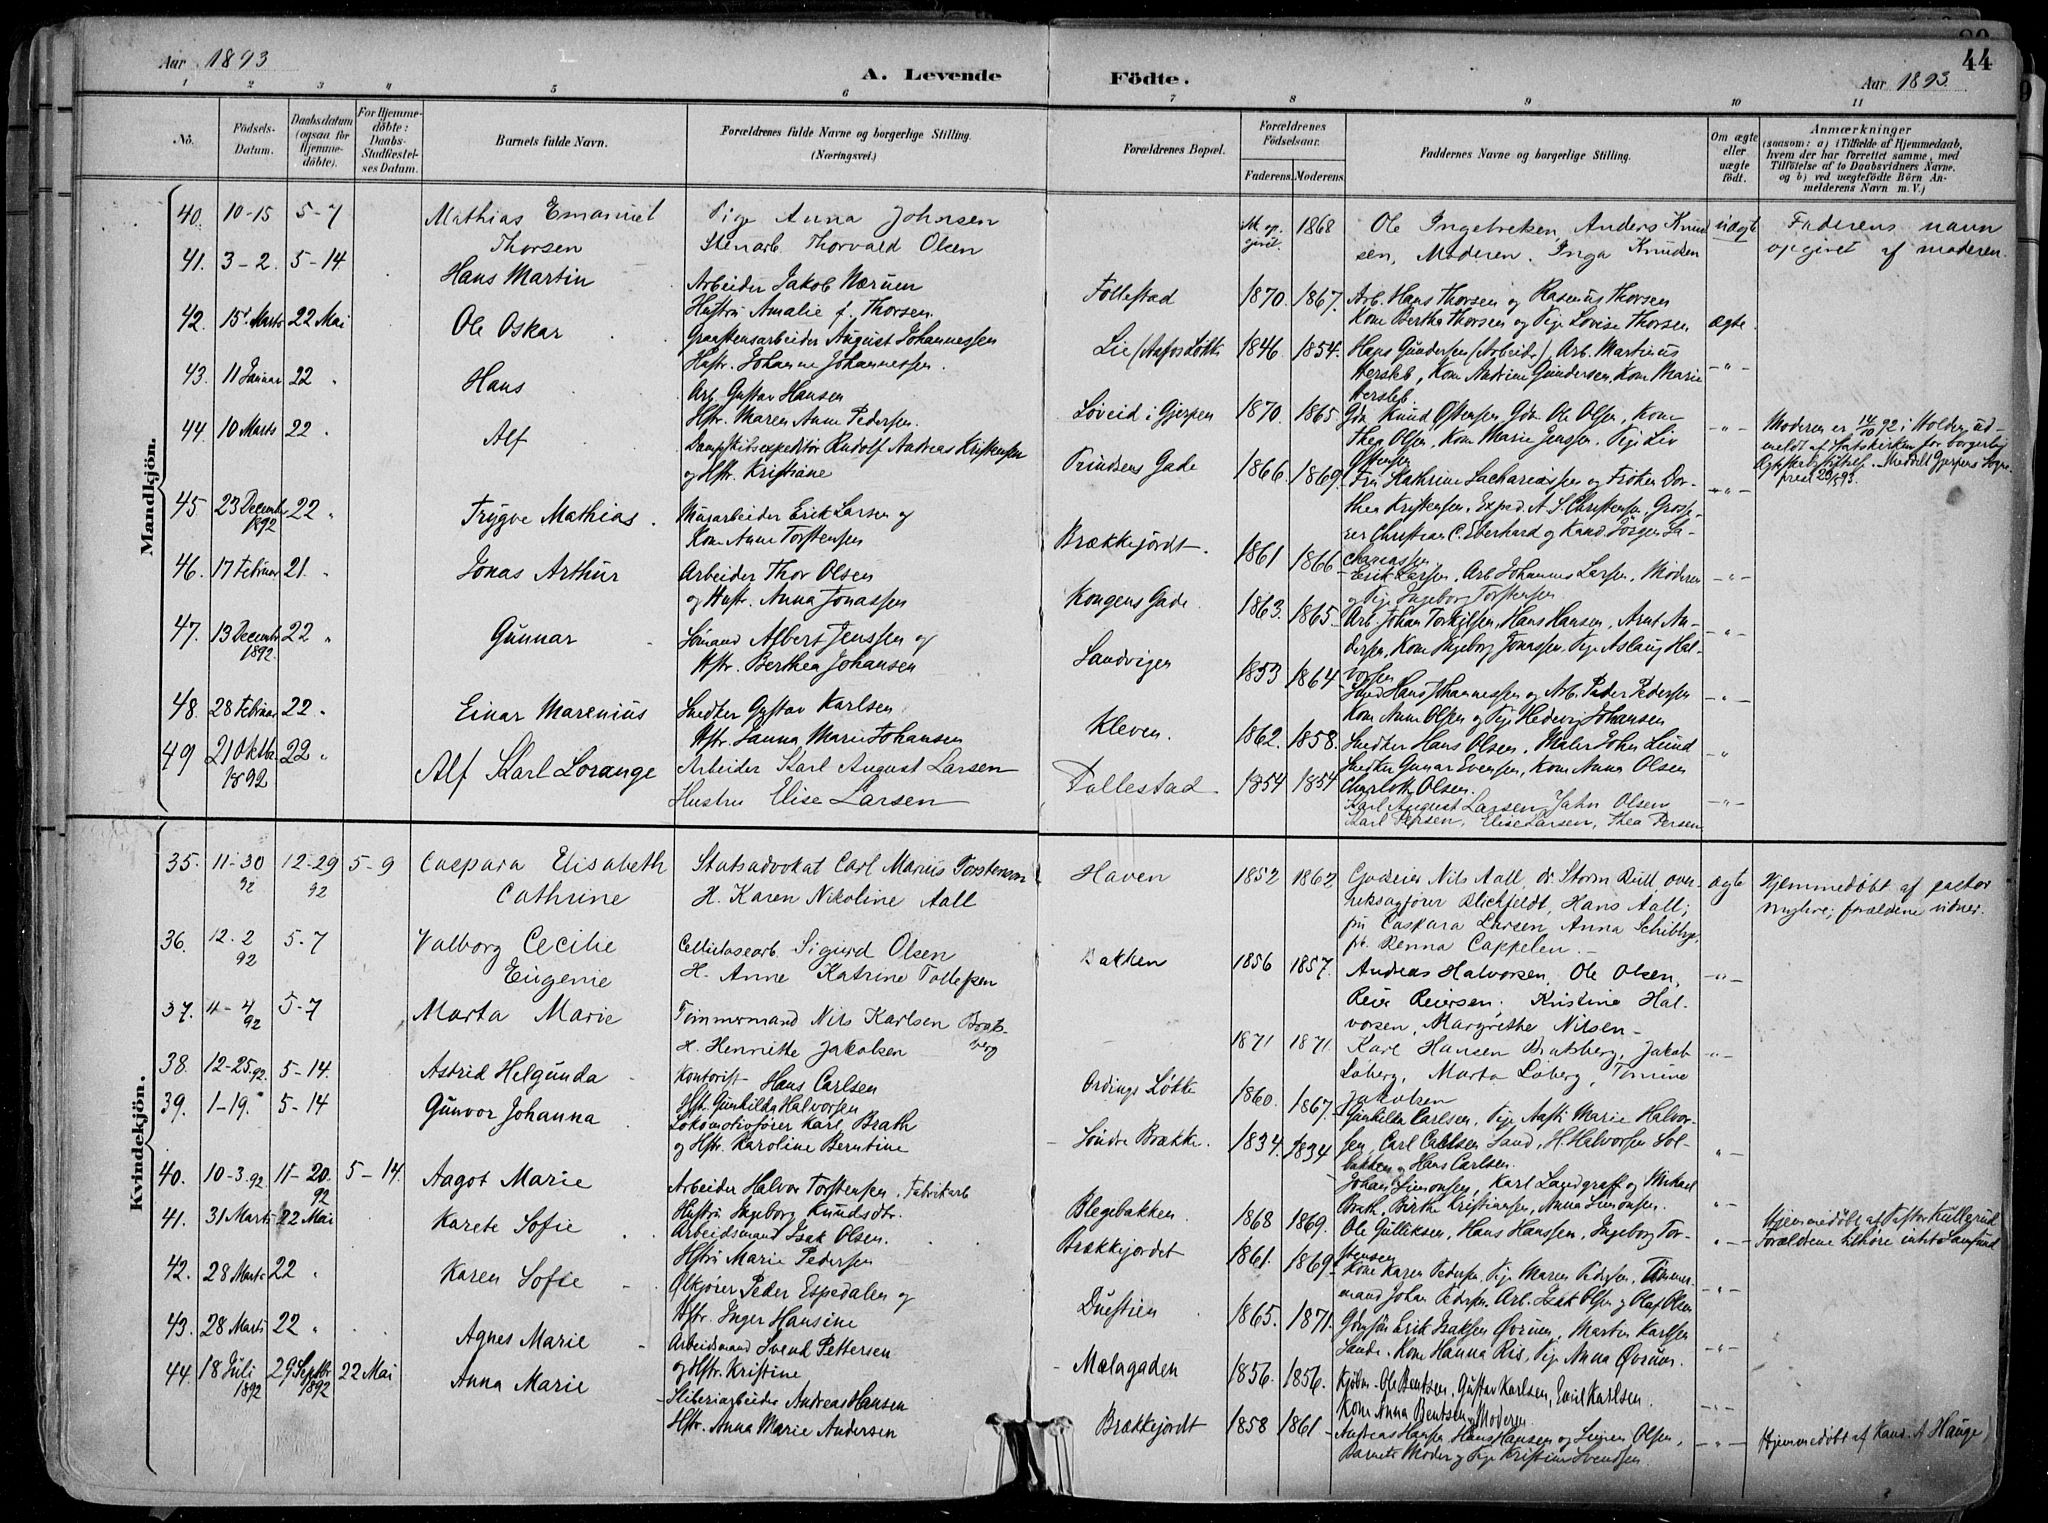 Aar 1893
A. Levende
Födte.
44
Aar 1893
1 2 3 4 5 6 7 8 9 10 11
No.
Födsels-Datum.
Daabsdatum (ogsaa for Hjemmedöbte).
For Hjemmedöbte: Daabs-Stadfæstelses Datum.
Barnets fulde Navn.
Forældrenes fulde Navne og borgerlige Stilling. (Næringsvei.)
Forældrenes Bopæl.
Forældrenes Födselsaar.
Faderens. Moderens.
Faddernes Navne og borgerlige Stilling.
Om ægte eller uægte födt.
Anmærkninger
(saasom: a) i Tilfælde af Hjemmedaab, hvem der har forrettet samme, med Tilföielse af to Daabsvidners Navne. og b) ved uægtefödte Börn Anmelderens Navn m. V.)
Mandkjön.
40. 10-15 5-7 Mathias Emanuel Thorsen
Pige Anna Johnsen
Stenarb Thorvald Olsen
1868
Ole Ingebretsen Anders Knudsen, Moderen. Inga Knudsen
uægte
Faderens navn opgivet af moderen.
41. 3-2. 5-14 Hans Martin
Arbeider Jakob Nærum
Hustru Amalie f. Thorsen.
Follestad 1870. 1867.
Arb. Hans Thorsen og Rasmus Thorsen
Kone Bertha Thorsen og Pige Lovise Thorsen
ægte
42. 15 Marts 22 Mai Ole Oskar
Graastensarbeider August Johannessen
Hustr. Johanne Johannessen.
Lie 1846 1854.
Hans Gundersen (Arbeider), Arb. Martinus
Hersleb, Kone Andrine Gundersen, Kone Marie
Hersleb.
43. 11 Januar 22 " Hans
Arb. Gustav Hansen
Hstr. Maren Anne Pedersen.
Løveid i Gjerpen 1870. 1865
Knud Ostensen, Ole Olsen, Kone
Thea Olsen, Kone Marie Jenssen. Pige Liv
Ostensen
Moderen er 14/10 92 i Holden udmeldt af Statskirken for borgerlig
44. 10 Marts 22 " Alf
Dampskibsexpeditør Rudolf Andreas Kristensen
og Hstr. Kristiane
Prindsens Gade 1866. 1869.
Fru Kathrine Zachariassen og Frøken Dorthea Kristensen, Exped. A. S. Christensen, Grosserer Christian C. Eberhard og Kand. Jørgen Zachariassen
45 23 December 1892 22 " Trygve Mathias.
Murarbeider Erik Larsen og
Kone Anne Torstensen
Brækkejordt. 1861 1866
Erik Larsen, Arb Johannes Larsen, Moderen
og Pige Ingeborg Torstensen
46. 17 Februar 21. " Jonas Arthur
Arbeider Thor Olsen
og Hustr. Anna Jonassen
Kongens Gade. 1863. 1865
Arb. Johan Torkilsen, Hans Hansen, Arnt Andersen, Kone Ingeborg Jonassen, Pige Aslaug Halvorsen
47. 13 December 1892. 22 " Gunnar
Sømand Albert Jenssen og
Hstr. Berthea Johansen
Sandvigen 1853 1864
Smed Hans Johannessen og Arb. Peder Pedersen
Kone Anne Olsen og Pige Hedevig Johansen
48. 28 Februar 22 " Einar Marenius
Snedker Gustav Karlsen.
Hstr. Janna Marie Johansen
Kleven. 1862. 1858.
Snedker Hans Olsen, Maler John Lund
Snedker Gunnar Evensen, Kone Anna Olsen
Charlotte Olsen.
49 21 Oktbr. 1892 22 " Alf Karl Lorange
Arbeider Karl August Larsen
Hustru Elise Larsen
Follestad 1854 1854
Karl August Larsen, John Olsen
Karl Persen, Elise Larsen, Thea Persen
Kvindekjön.
35. 11-30 92 12-29 92 5-9 Caspara Elisabeth Cathrine
Statsadvokat Carl Marius Torstenson
H. Karen Nikoline Aall
Haven 1852 1862
Godseier Nils Aall, dr. Storm Bull, overretssagfører Blichfeldt, Hans Aall;
frk Caspara Larsen, Anna Schibbye,
fr. Benna Cappelen.
ægte
Hjemmedøbt af pastor Myhre; forældrene vidner.
36. 12-2 92 5-7 Valborg Cecilie Eugenie
Cellulosearb. Sigurd Olsen
H. Anne Katrine Tollefsen
Bakken 1856 1857.
Andreas Halvorsen, Ole Olsen,
Reier Reiersen; Kristine Halvorsen, Margrethe Nilsen
37. 11-4 92 5-7 Marta Marie
Tømmermand Nils Karlsen Bratsberg
H. Henriette Jakobsen
1871 1871.
Karl Hansen Bratsberg, Jakob
Løberg, Marta Løberg, Tomine
Jakobsen
38. 12-25. 92. 5-14. Astrid Helgunda
Kontorist Hans Carlsen
Hstr. Gunhilda Halvorsen
Ordings Løkke 1860. 1867.
Gunhilde Carlsen, Pige Aasti Marie Halvorsen, Carl Carlsen Sand, H. Halvorsen Solbakken og Hans Carlsen.
39. 1-19. 5-14 Gunvor Johanna
Lokomotivfører Karl Brath
og Hstr. Karoline Berntine
Søndre Brække. 1834. 1834
Johan Simonsen, Karl Landgraff og Mikael
Brath, Birthe Kristiansen, Anna Simonsen.
40. 10-3. 92 11-20. 92 5-14. Aagot Marie
Arbeider Halvor Torstensen, Fabrikarb
Hustru Ingeborg Knudsdtr.
Blegebakken. 1868 1869.
Ole Gulliksen, Hans Hanssen, Ingeborg Torstensen
Hjemmedøbt af Pastor Kullerud
Forældrene tilhøre intet Samfund
41. 31 Marts 22 Mai Karete Sofie
Arbeidsmand Isak Olsen.
Hstru Marie Pedersen
Brækkejordet 1861. 1869
Kone Karen Pedersen, Pige Maren Pedersen, Tømmermand Johan Pedersen, Arb. Isak Olsen og Olaf Olsen
42. 28 Marts 22 " Karen Sofie
Ølkjører Peder Espedalen og
Hstr. Inger Hansine
Duestien 1865. 1871.
Erik Isaksen Øvrum, Martin Karlsen
Sande. Kone Hanna Ris, Pige Anna Øvrum.
43. 28 Marts 22 " Agnes Marie
Arbeidsmand Svend Pettersen
og Hstr. Kristine
Mælagaden 1856. 1856.
Kjøbm. Ole Bentsen, Gustav Karlsen, Emil Karlsen.
Kone Anna Bentsen, Moderen
44. 18 Juli 1892 29 Septbr 1892 22 Mai Anna Marie
Sliberiarbeider Andreas Hansen
Hstr. Anna Marie Andersen
Brækkejordt 1858 1861
Andreas Hansen, Hans Hansen og Olsen,
Barnets Moder og Pige Kristine Svendsen
Hjemmedøbt af Kand. A Hauge